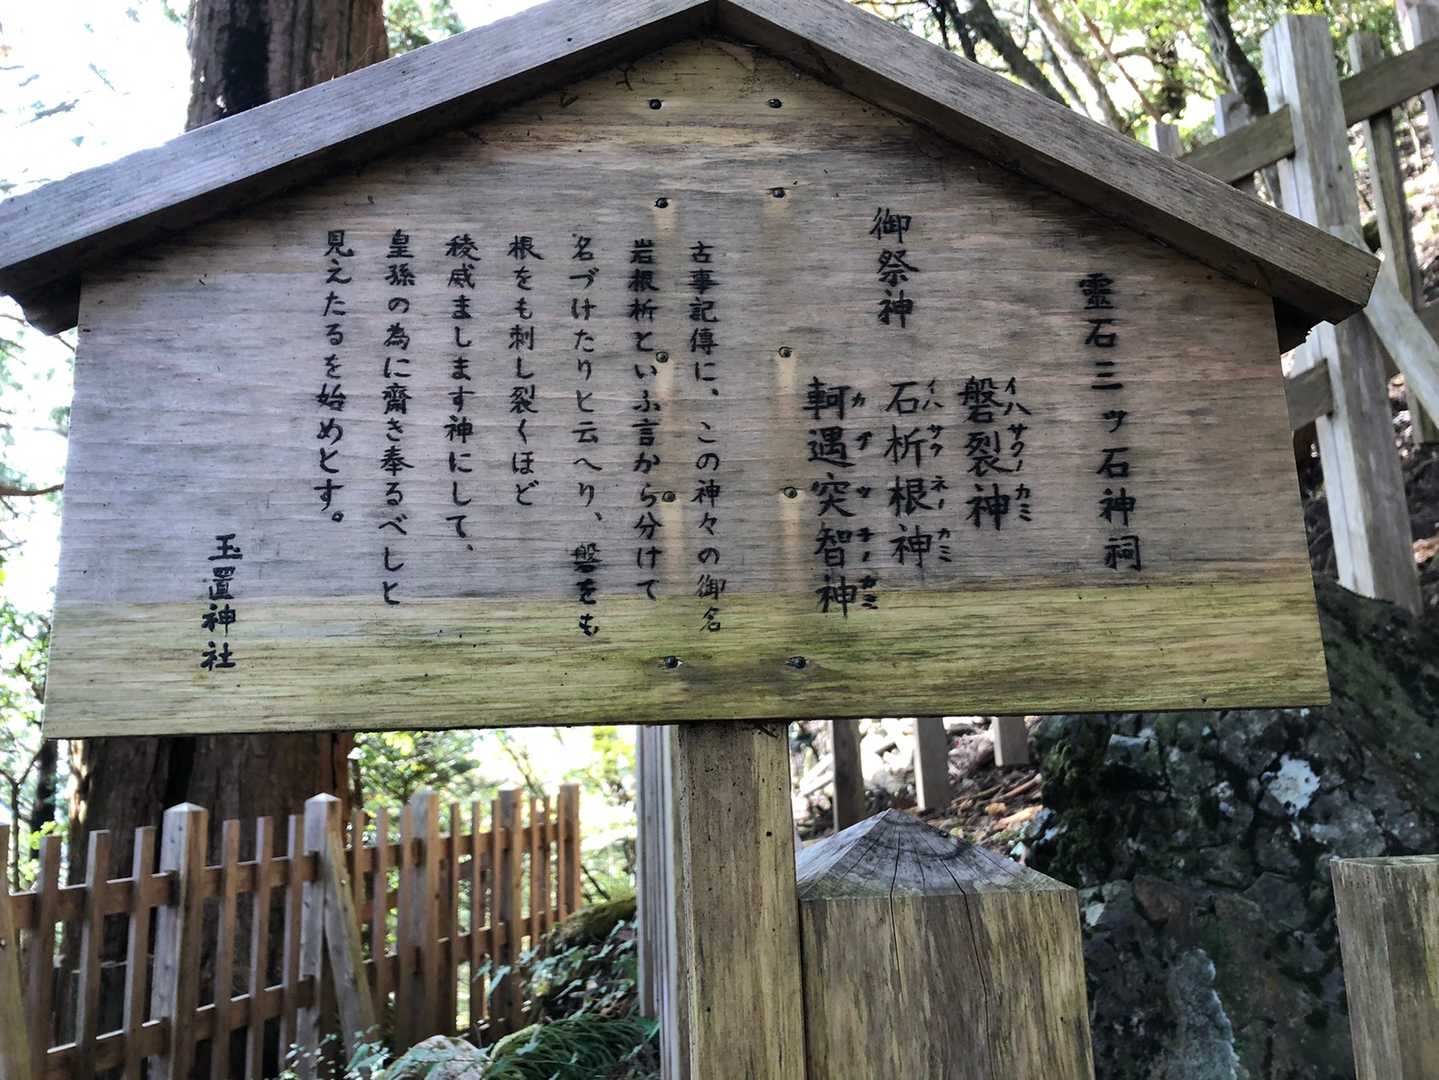 霊石三ツ石神祠
御祭神
磐裂神
イハサクノカミ
石析根神
イハサクネノカミ
軻遇突智神
カグツチノカミ
古事記傳に、この神々の御名
岩根析といふ言から分けて
名づけたりと云へり、磐をも
根をも刺し裂くほど
稜威まします神にして、
皇孫の為に齋き奉るべしと
見えたるを始めとす。
玉置神社